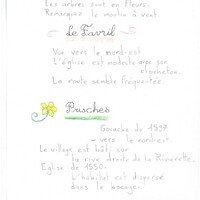 Les arbres sont en fleurs.
Remarquez le moulin à vent.
Le Favril
Vue vers le nord-est
L'église est modeste avec son
clocheton.
La route semble fréquentée.
Prisches
Gouache de 1597
– vers le nord-est.
Le village est bâti sur
la rive droite de la Riviérette.
Eglise de 1550.
L'habitat est dispersé
dans le bocage.